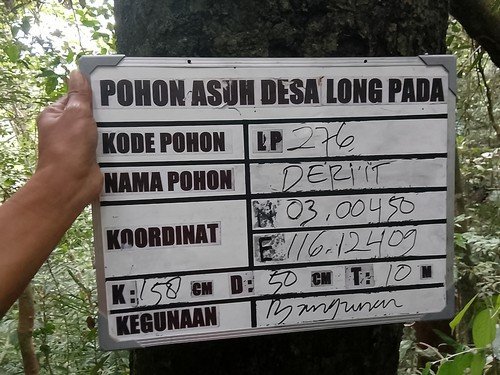 POHON ASUH DESA LONG PADA
KODE POHON LP 276
NAMA POHON DERI'IT
KOORDINAT N 03.00450
E 116.12409
K: 158 CM D: 50 CM T: 10 M
KEGUNAAN Bangunan